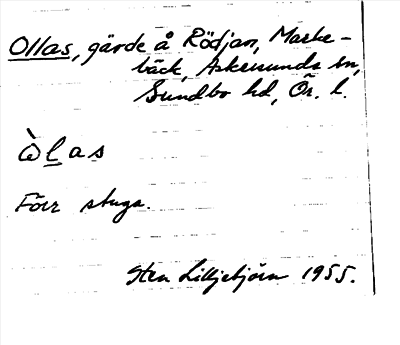 Ollas, gärde å Rödjan, Marke-
bäck, Askersunds sn,
Sundbo hd, Ör. l.
ὼl̲as
Förr stuga.
Sten Lilljebjörn 1955.